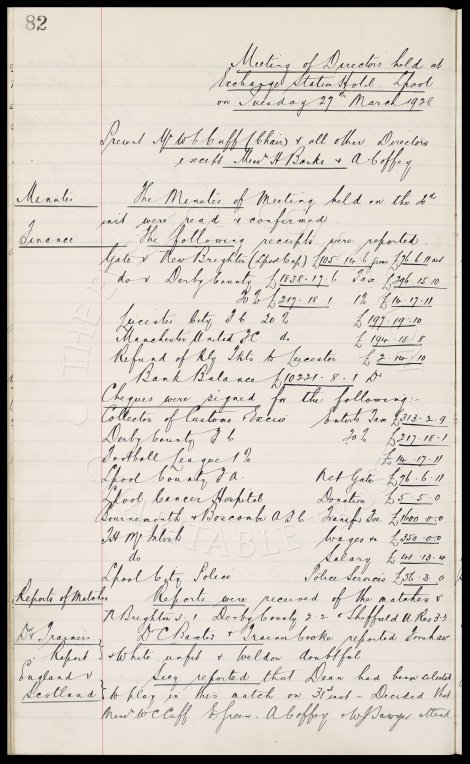 82
Meeting of Directors held at
Exchange Station Hotel. Lpool
on Tuesday 27th March 1928
Present Mr W C Cuff (Chair) & all other Directors
except Messrs H Banks & A Coffey
Minutes The Minutes of Meeting held on the 20th
inst were read & confirmed.
Finance The following receipts were reported.
Gate v New Brighton (Lpool Cup) £105.14.6 gross £76.6.11 net
do v Derby County £1838.17.6 Tax £296.15.10
20% £217.18.1 1% £14.17.11
Leicester City F C 20% £197.19.10
Manchester United F.C. do. £194.18.8
Refund of Rly Tkts to Leicester £2.14.10
Bank Balance £10221.8.1 Dr
Cheques were signed for the following:-
Collector of Customs Excise Enterts Tax £313.2.9
Derby County F C 20% £217.18.1
Football League 1% £14.17.11
Lpool County F A. Net Gate £76.6.11
Lpool Cancer Hospital Donation £5.5.0
Bournemouth & Boscombe A F C Transfer Fee £1600.0.0
T H McIntosh Wages a/c £350.0.0
do Salary £41.13.4
Lpool City Police Police Services £36.3.0
Reports of Matches Reports were received of the matches v
N Brighton Derby County 2.2 v Sheffield U Res 3.3
Dr & Trainers Dr C Baxter & Trainer Cooke reported Kershaw
Report & White unfit & Weldon doubtful.
England v Secy reported that Dean had been selected
Scotland to play in this match on 31st inst - Decided that
Messrs W C Cuff E Green. A Coffey & W J Sawyer attend